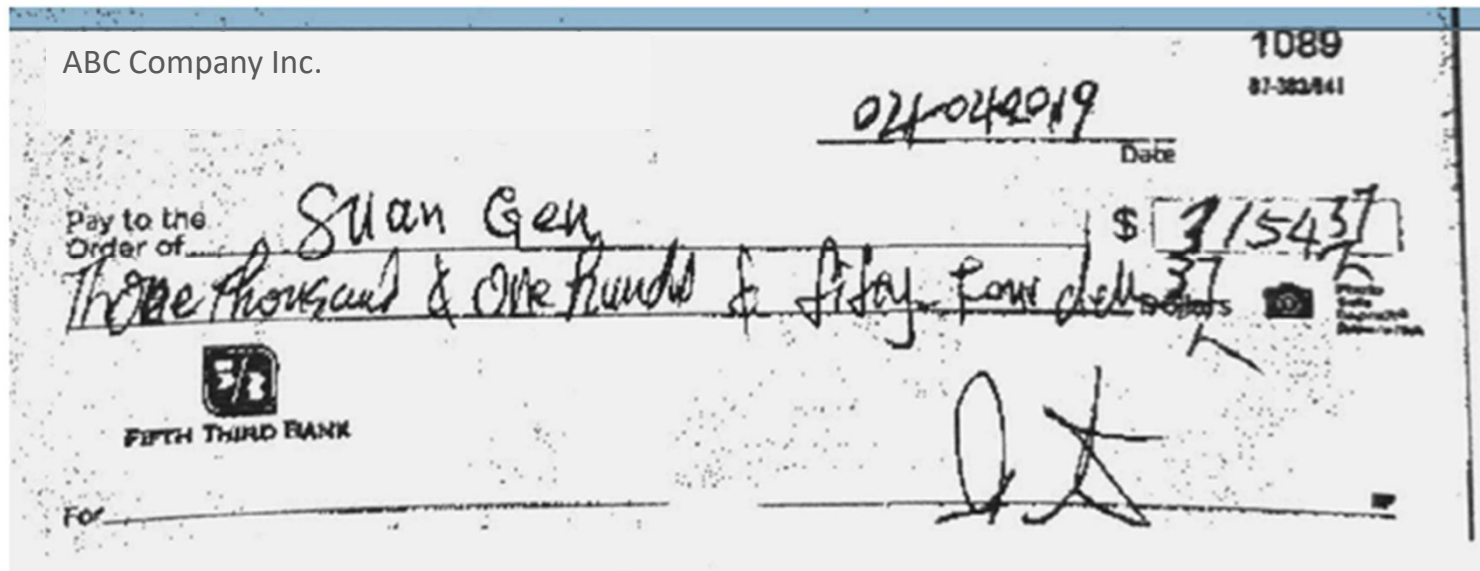 ABC Company Inc.
1089
87-382/841
04-042019
Date
Pay to the
Order of
Suan Gen
$ 3154 37
One thousand & One hundred & fifty four 37
Dollars
Photo
Safe
Deposit®
FIFTH THIRD BANK
For